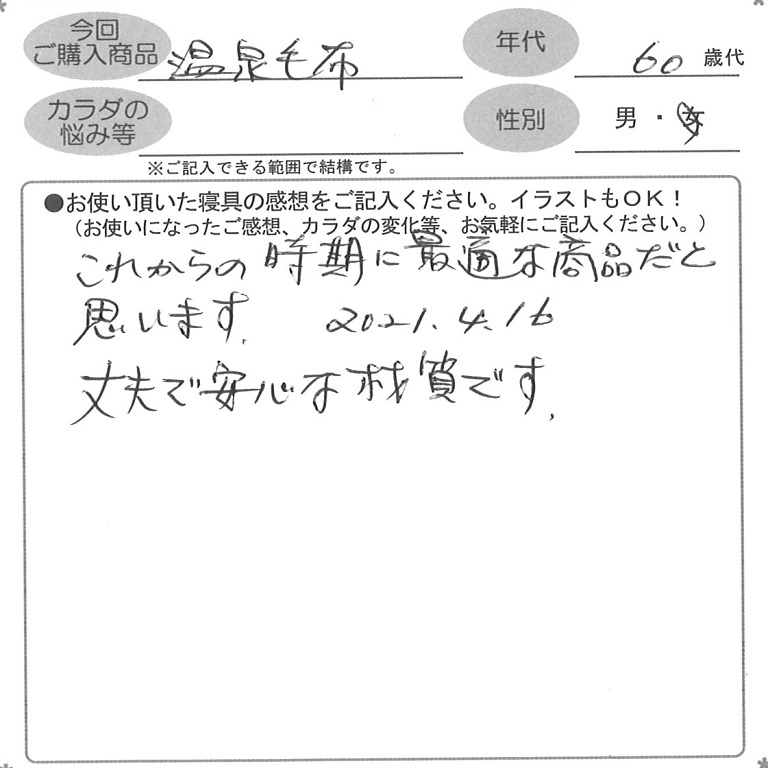 今回
ご購入商品
温泉毛布
年代
60歳代
カラダの
悩み等
性別
男・女
※ご記入できる範囲で結構です。
●お使い頂いた寝具の感想をご記入ください。イラストもOK！
（お使いになったご感想、カラダの変化等、お気軽にご記入ください。）
これからの時期に最適な商品だと
思います。 2021.4.16
丈夫で安心な材質です。